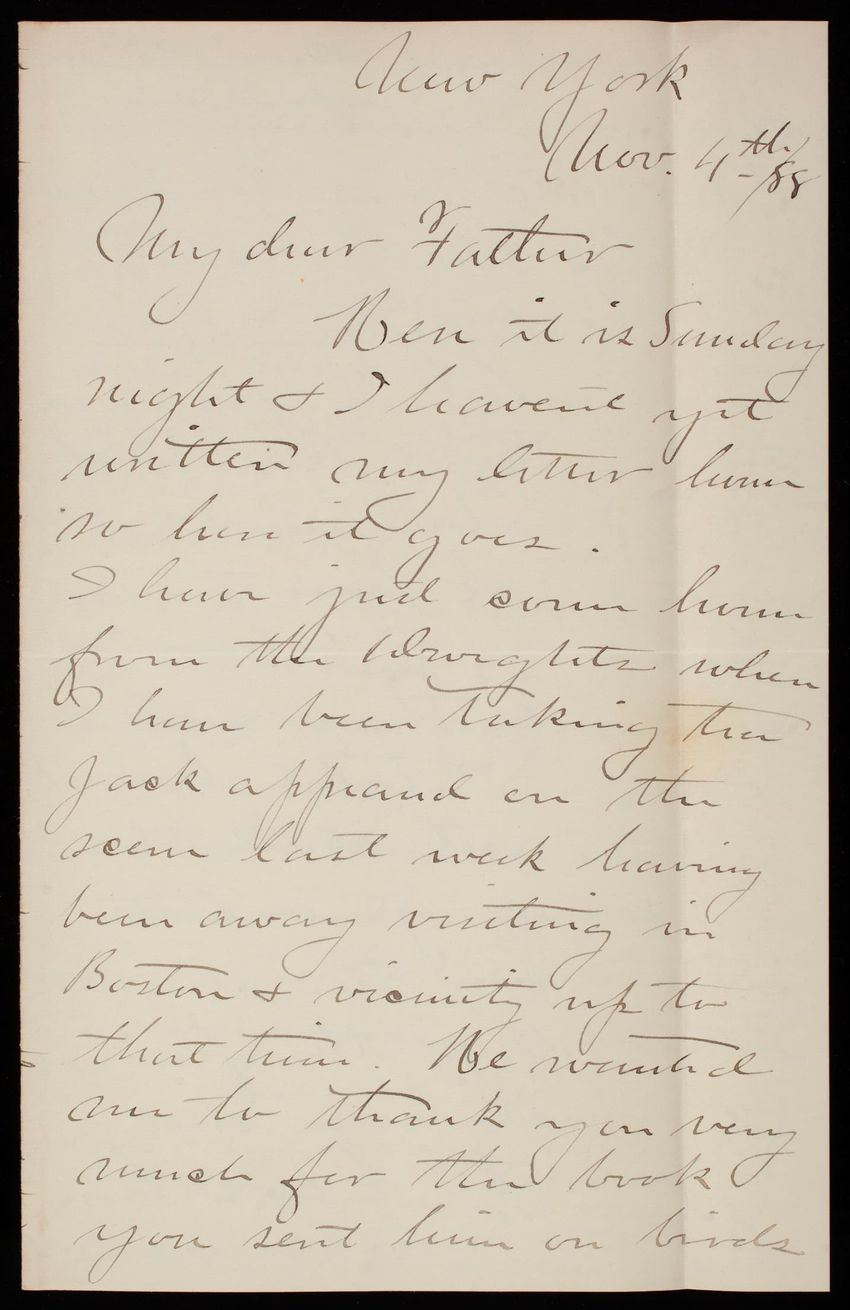 New York
Nov. 4th/88
My dear Father
Here it is Sunday
night & I havent yet
written my letter home
so here it goes.
I have just come home
from the Dwights when
I have been taking tea
Jack appeared on the
scene last week having
been away visiting in
Boston & vicinity up to
that time. He wanted
me to thank you very
much for the book
you sent him on birds